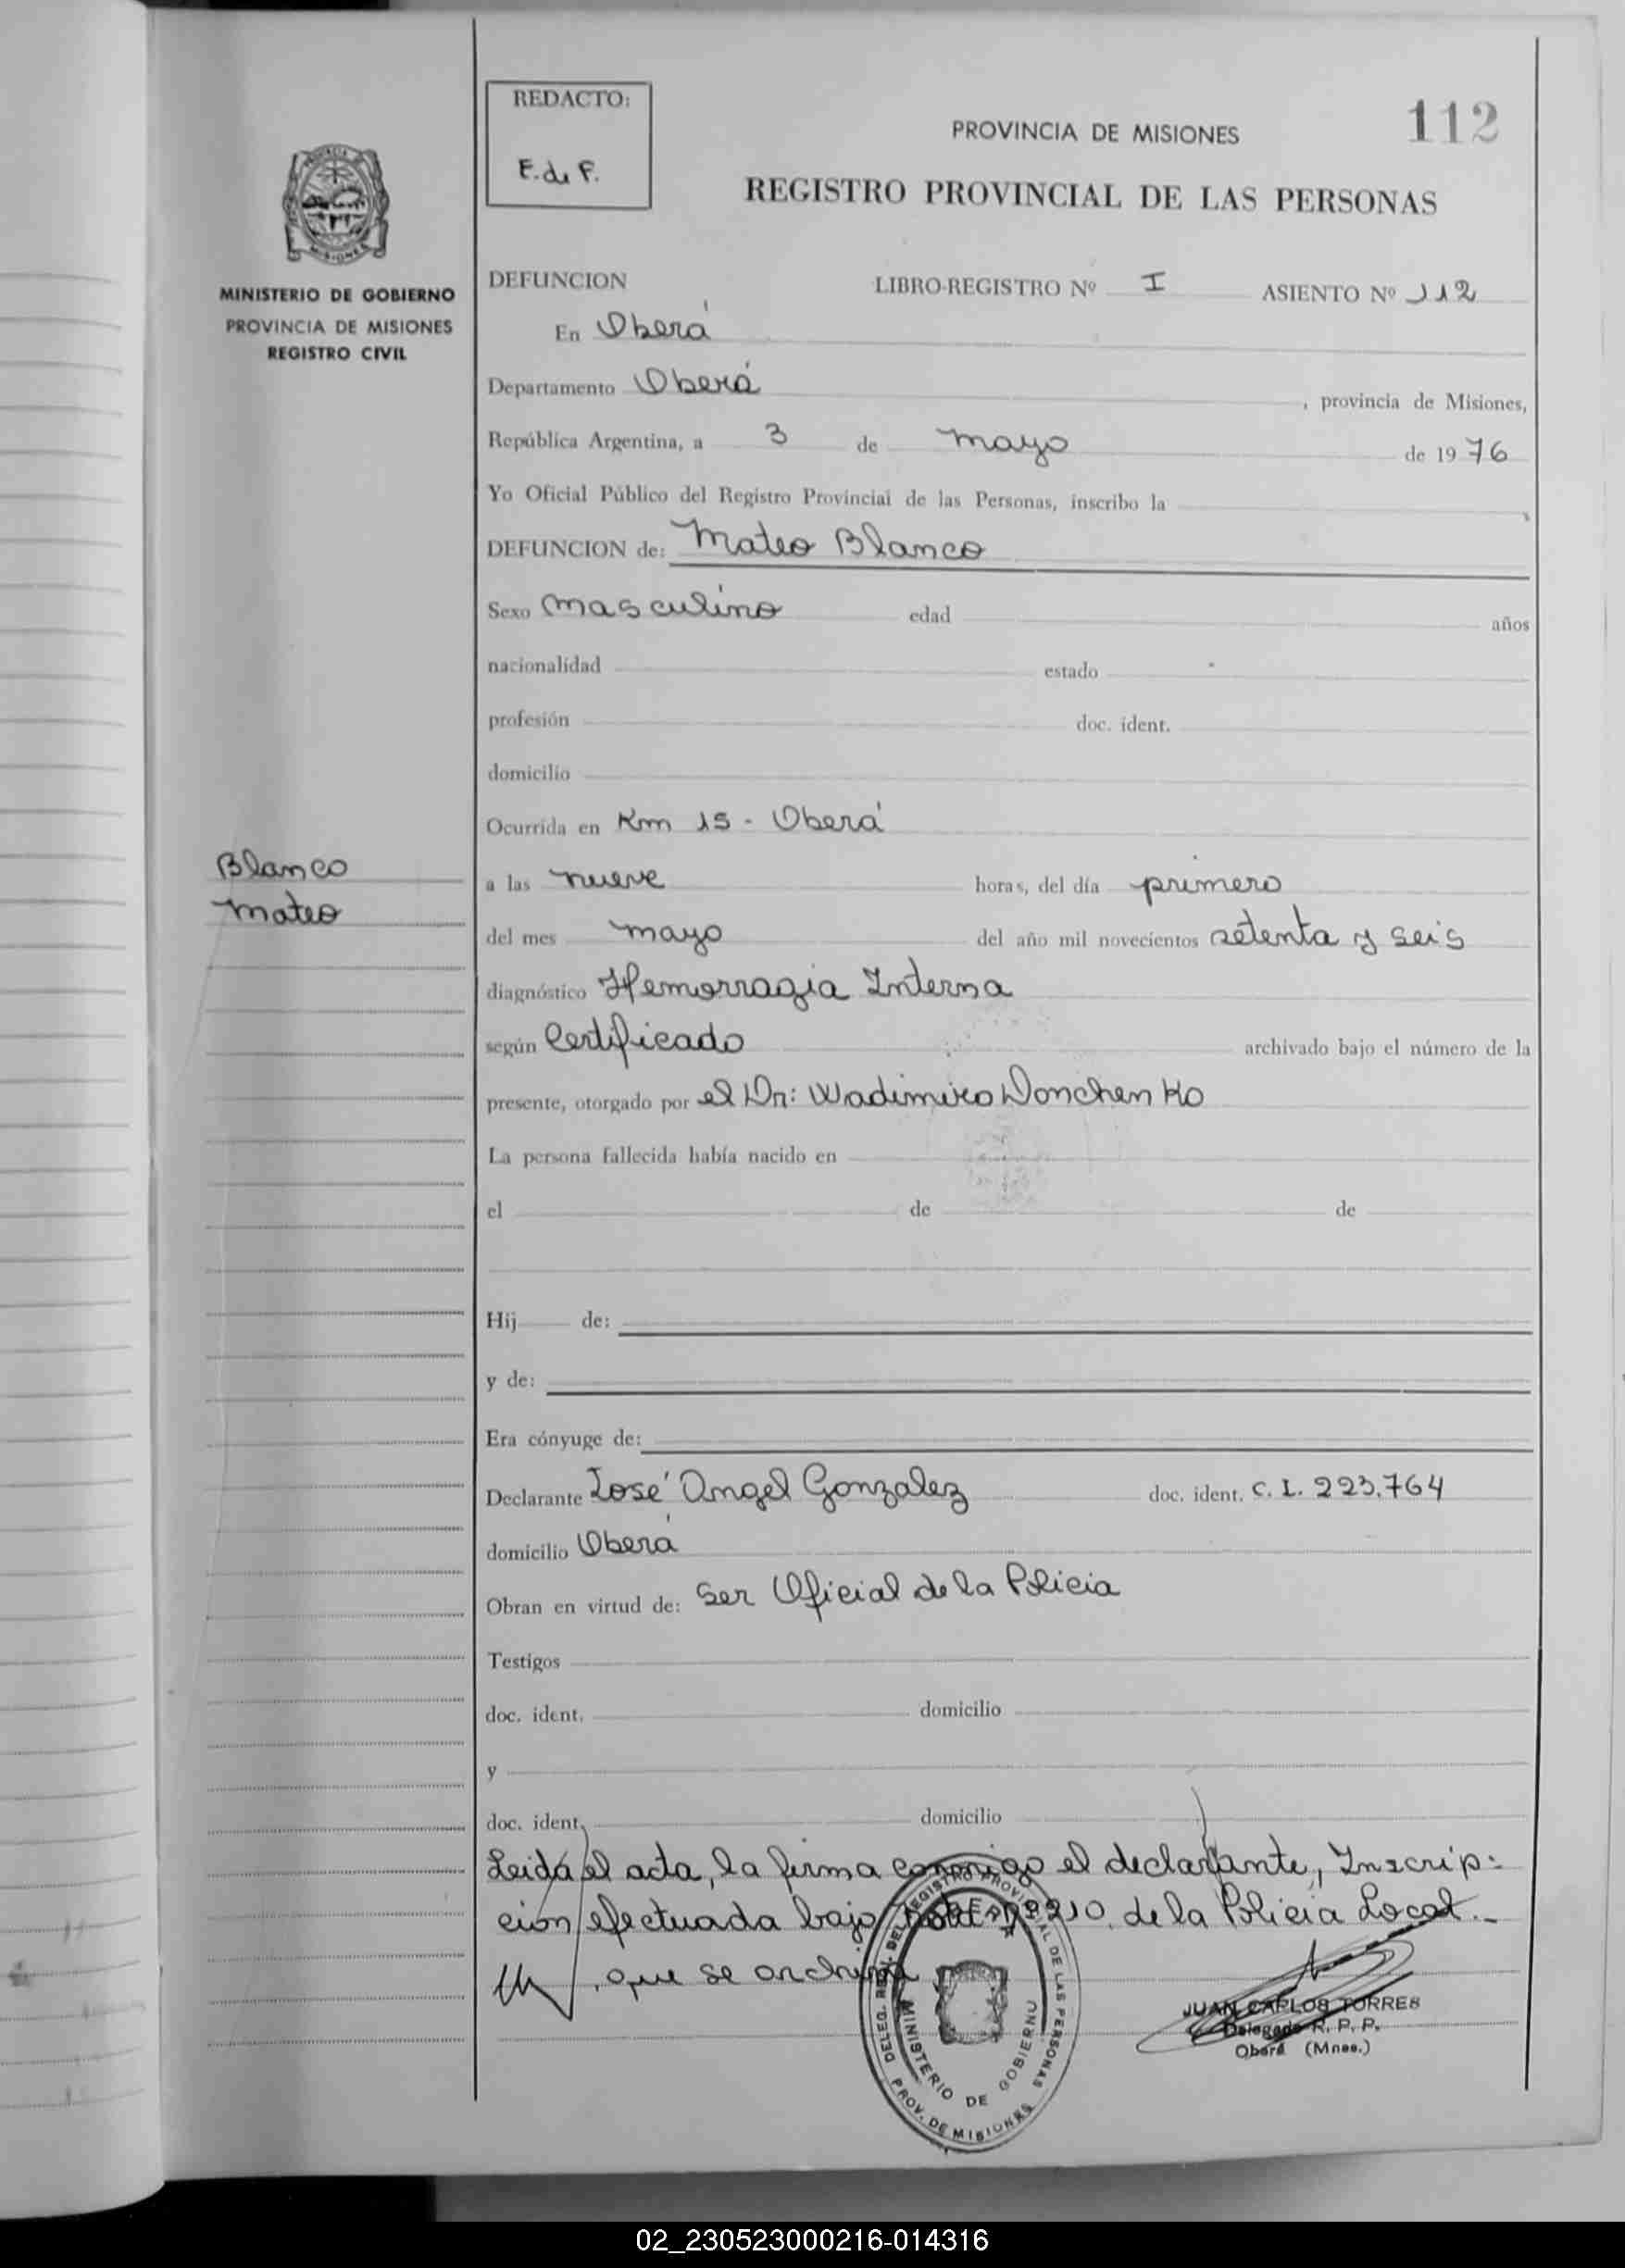 REDACTO:
E. de F.
PROVINCIA DE MISIONES
112
REGISTRO PROVINCIAL DE LAS PERSONAS
MINISTERIO DE GOBIERNO
PROVINCIA DE MISIONES
REGISTRO CIVIL
DEFUNCION LIBRO-REGISTRO Nº I ASIENTO Nº 112
En Oberá
Departamento Oberá, provincia de Misiones,
República Argentina, a 3 de mayo de 1976
Yo Oficial Público del Registro Provincial de las Personas, inscribo la
DEFUNCION de: Mateo Blanco
Sexo masculino edad años
nacionalidad estado
profesión doc. ident.
domicilio
Ocurrida en Km 15 - Oberá
Blanco
Mateo
a las nueve horas, del día primero
del mes mayo del año mil novecientos setenta y seis
diagnóstico Hemorragia Interna
según Certificado archivado bajo el número de la
presente, otorgado por el Dr: Wadimiro Donchenko
La persona fallecida había nacido en
el de de
Hij de:
y de:
Era cónyuge de:
Declarante José Angel Gonzalez doc. ident. C. I. 223.764
domicilio Oberá
Obran en virtud de: Ser Oficial de la Policia
Testigos
doc. ident. domicilio
y
doc. ident. domicilio
Leida el acta, la firma conmigo el declarante, Inscrip-
ción efectuada bajo nota Nº 210 de la Policia Local.-
que se archiva
DELEG. REG. DEL REGISTRO PROVINCIAL DE LAS PERSONAS
MINISTERIO DE GOBIERNO
PROV. DE MISIONES
JUAN CARLOS TORRES
Delegado R. P. P.
Oberá (Mnes.)
02_230523000216-014316